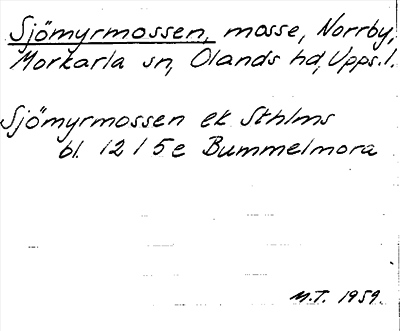 Sjömyrmossen, mosse, Norrby,
Morkarla sn, Olands hd, Upps. l.
Sjömyrmossen ek Sthlms
bl. 12 I 5e Bummelmora
M.T. 1959.